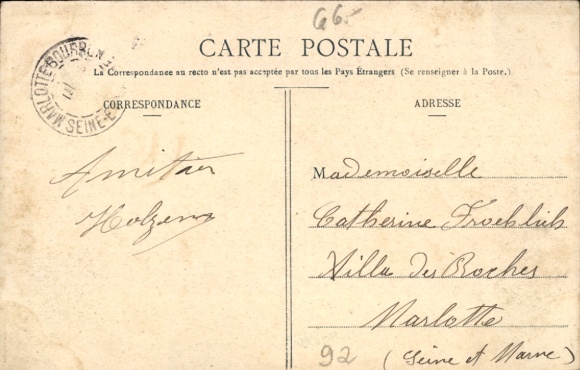 66.-
CARTE POSTALE
La Correspondance au recto n'est pas acceptée par tous les Pays Étrangers (Se renseigner à la Poste.)
CORRESPONDANCE
Amitiés
ADRESSE
Mademoiselle
Catherine Froehlich
Villa des Roches
Marlotte
(Seine et Marne)
92
MARLOTTE SEINE-E